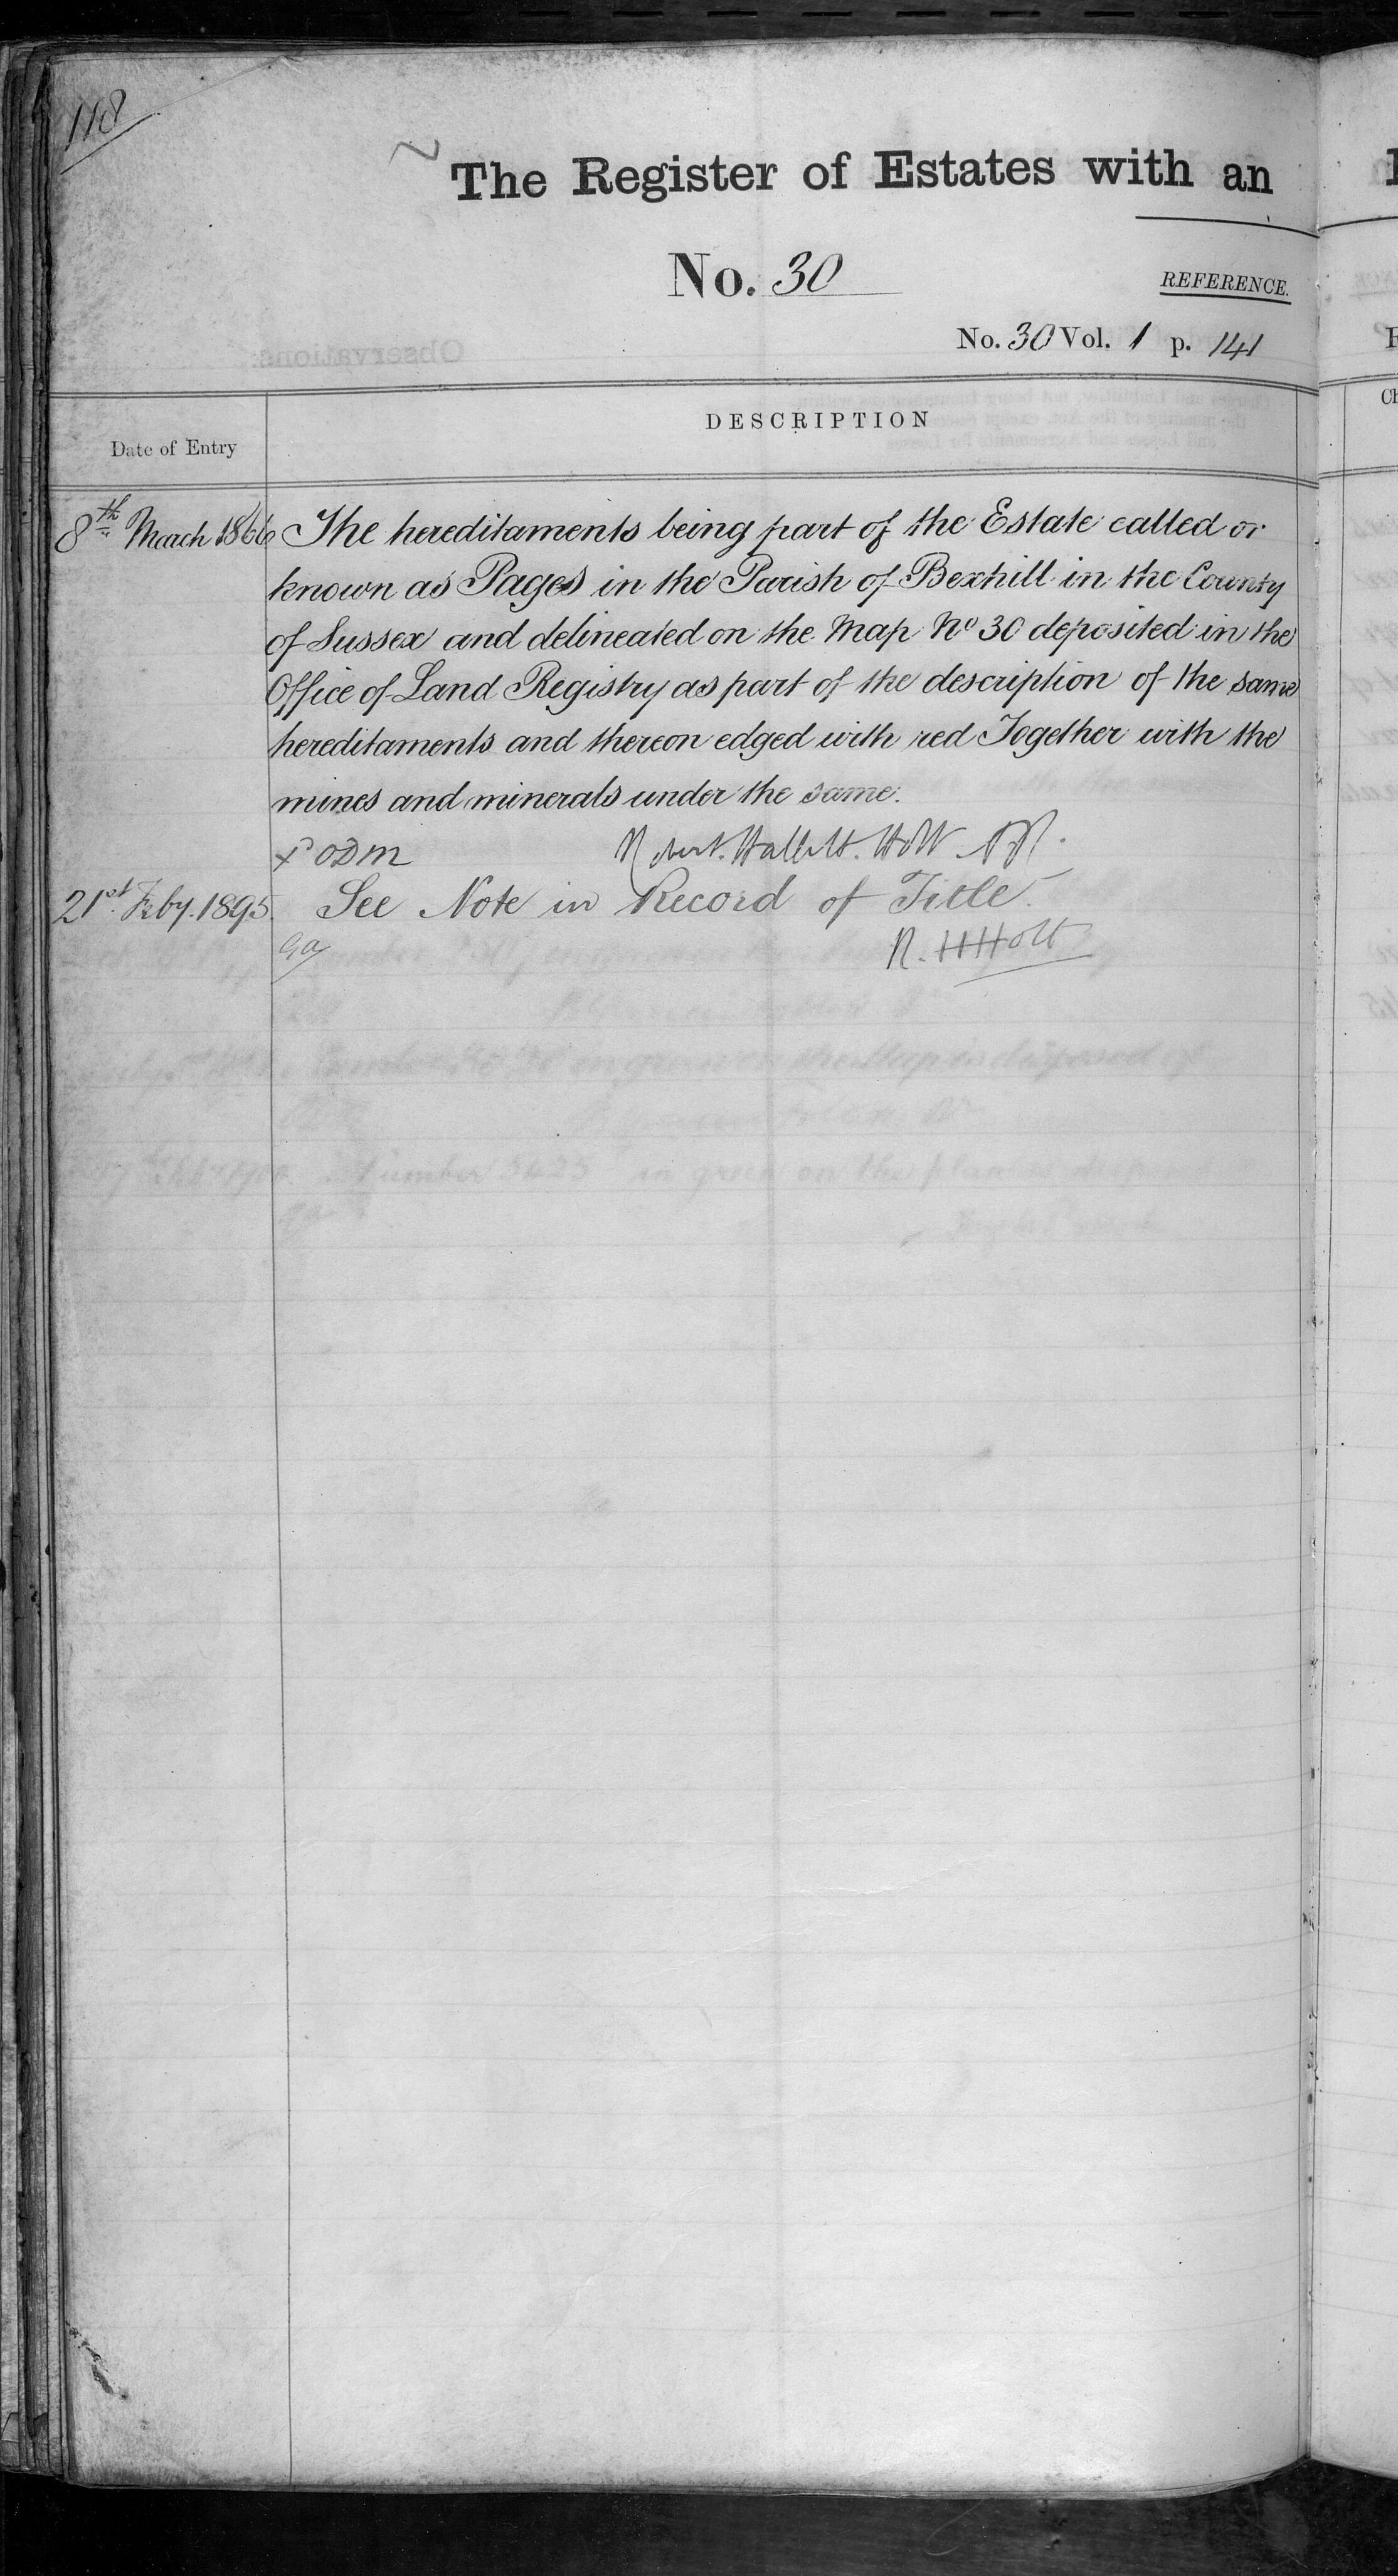 118
The Register of Estates with an
No. 30
REFERENCE.
No. 30 Vol. 1 p. 141
Date of Entry
DESCRIPTION
8th March 1866 The hereditaments being part of the Estate called or
known as Pages in the Parish of Bexhill in the County
of Sussex and delineated on the Map No 30 deposited in the
Office of Land Registry as part of the description of the same
hereditaments and thereon edged with red Together with the
mines and minerals under the same.
Robert Hallett Holt
21st Feby. 1895. See Note in Record of Title.
R. H Holt